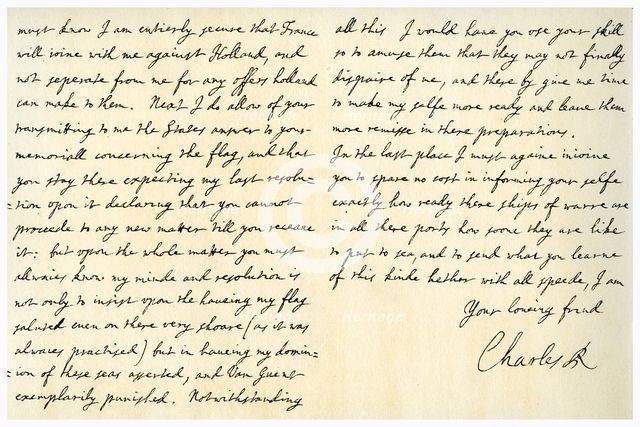 must know I am entierly secure that France
will ioine with me against Holland, and
not seperate from me for any offers holland
can make to them. Next I do allow of your
transmitting to me the States answer to your
memoriall concerning the flag, and that
you stay there expecting my last resolu=
=tion upon it declaring that you cannot
proceede to any new matter till you receave
it: but upon the whole matter you must
allwaies know my minde and resolution is
not only to insist upon the haveing my flag
saluted even on there very shoare (as it was
alwaies practised) but in haveing my domin=
=ion of these seas asserted, and Van Guent
exemplarily punished. Notwithstanding
all this I would have you use your skill
so to amuse them that they may not finally
dispaire of me, and thereby give me time
to make my selfe more ready and leave them
more remisse in there preparations.
In the last place I must againe inioine
you to spare no cost in informing your selfe
exactly how ready there ships of warre are
in all there ports how soone they are like
to put to sea, and to send what you learne
of this kinde hether with all speede, I am
Your loveing frind
Charles R